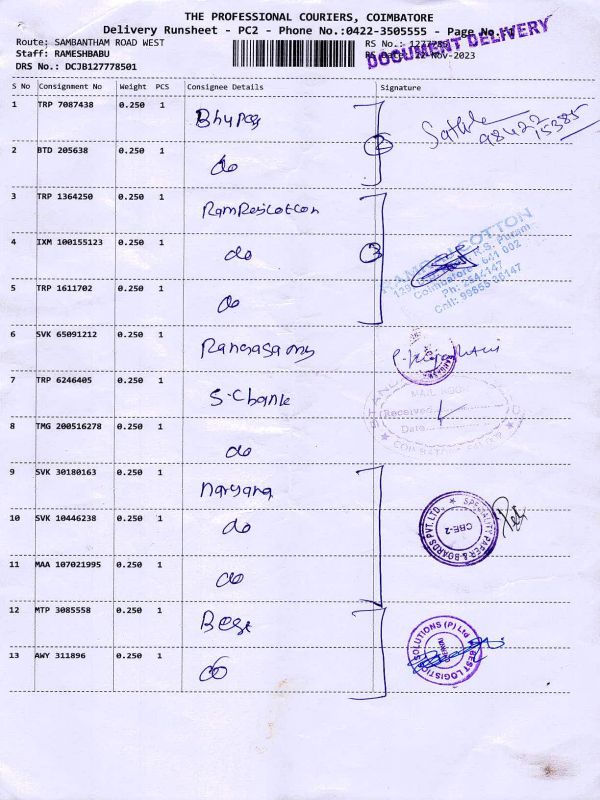 THE PROFESSIONAL COURIERS, COIMBATORE
Delivery Runsheet - PC2 - Phone No.:0422-3505555 - Page No.
Route: SAMBANTHAM ROAD WEST
Staff: RAMESHBABU RS Date: 22-Nov-2023
DRS No.: DCJB127778501
DOCUMENT DELIVERY
S No Consignment No Weight PCS Consignee Details Signature
1 TRP 7087438 0.250 1
98422 15385
2 BTD 205638 0.250 1 do
2
3 TRP 1364250 0.250 1 RamRajcotton
4 IXM 100155123 0.250 1 do 3
COTTON
Coimbatore - 641 002
5 TRP 1611702 0.250 1 do
6 SVK 65091212 0.250 1 Rangasamy
7 TRP 6246405 0.250 1 S-Chank
MAIL
Received
Date
8 TMG 200516278 0.250 1 do
9 SVK 30180163 0.250 1 naryana
SPECIALITY PAPER & BOARDS PVT. LTD.,
CBE-2
10 SVK 10446238 0.250 1 do
11 MAA 107021995 0.250 1 do
12 MTP 3085558 0.250 1 Best
BEST LOGISTIC SOLUTIONS (P) Ltd
13 AWY 311896 0.250 1 do